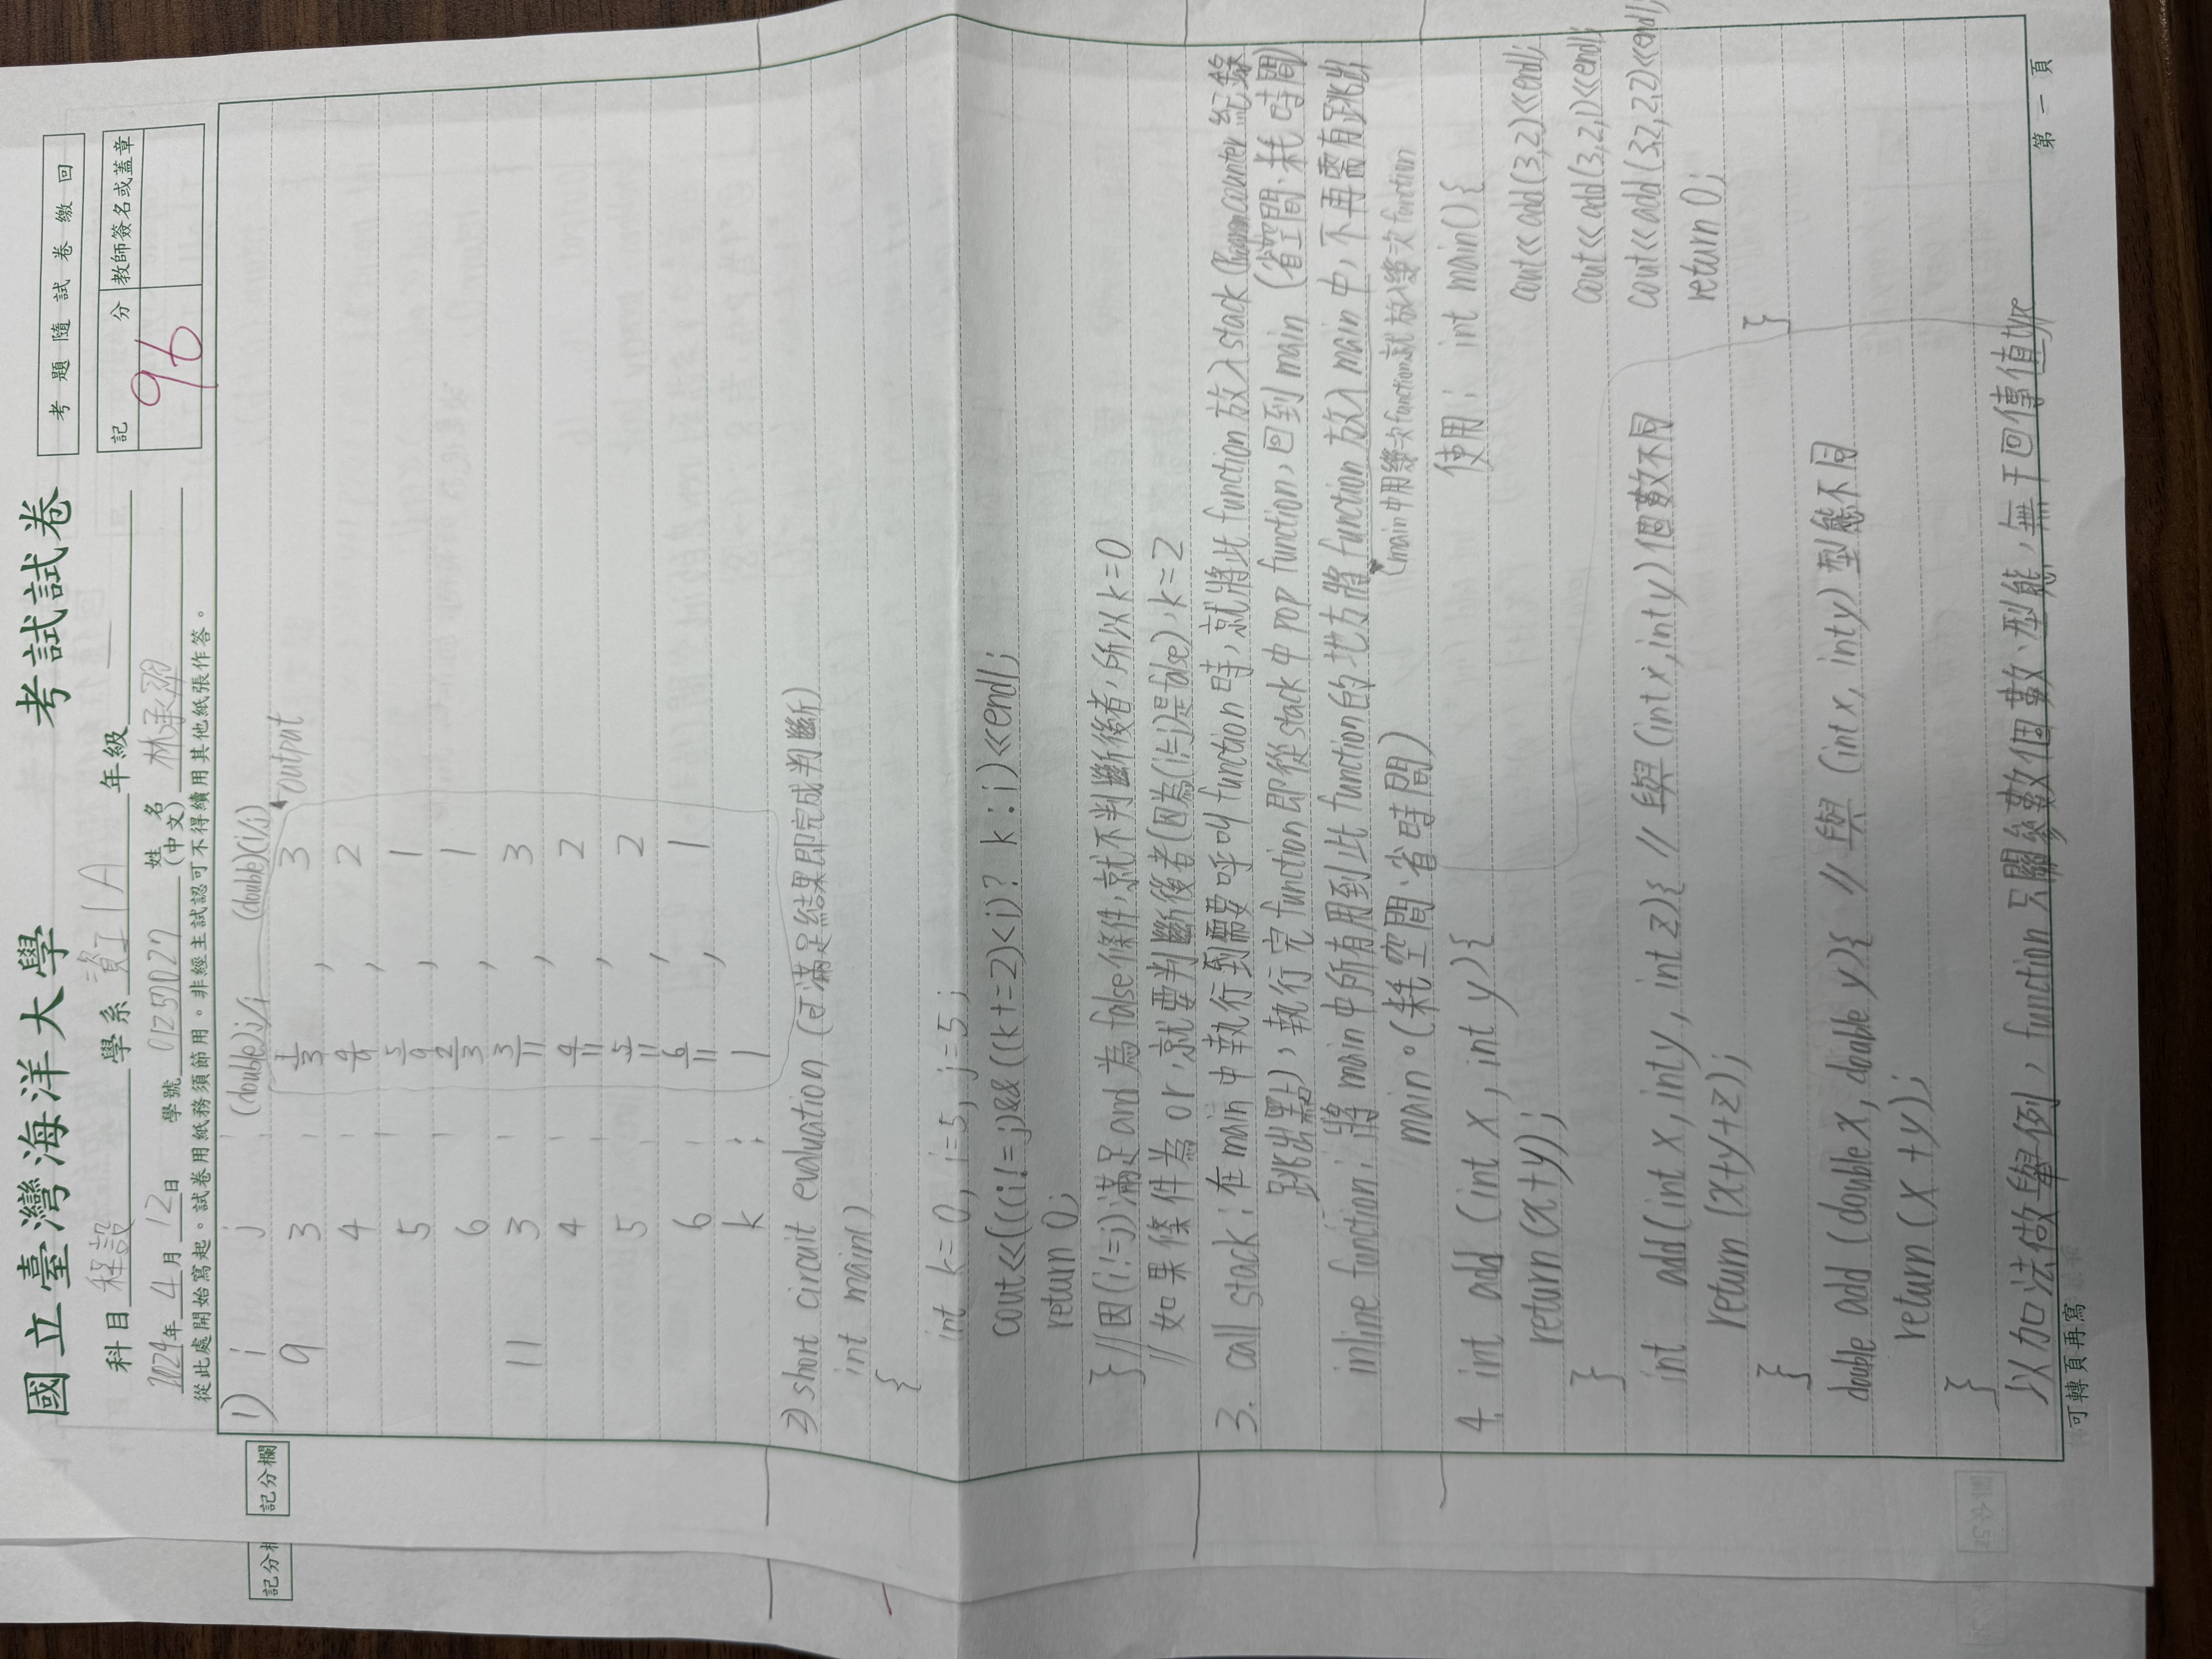 國立臺灣海洋大學 考試試卷
考題隨試卷繳回
科目 程設 學系 資工1A 年級 一
記分 教師簽名或蓋章
96
2024年 4月 12日 學號 01257027 姓名(中文) 林承羿
從此處開始寫起。試卷用紙務須節用。非經主試認可不得續用其他紙張作答。
記分欄
1) i j : (double)j/i (double)(i/j)
9 3 : 1/3 , 3 output
4 : 4/9 , 2
5 : 5/9 , 1
6 : 2/3 , 1
11 3 : 3/11 , 3
4 : 4/11 , 2
5 : 5/11 , 2
6 : 6/11 , 1
k : 1
2) short circuit evaluation (可滿足結果即完成判斷)
int main()
{
int k=0, i=5, j=5;
cout<<(((i!=j)&&((k+=2)<i)? k:i)<<endl;
return 0;
} //因(i!=j)滿足and為false條件,就不判斷後者,所以k=0
//如果條件為or,就要判斷後者(因為(i!=j)是false),k=2
3. call stack:在main中執行到需要呼叫function時,就將此function放入stack (Program counter 紀錄
跳出點),執行完function即從stack中pop function,回到main (省空間.耗時間)
inline function:將main中所有用到此function的地方將function放入main中,不再需有跳出
main。(耗空間.省時間) (main中用幾次function就放入幾次function
4. int add (int x, int y){ 使用: int main(){
return (x+y); cout<<add(3,2)<<endl;
} cout<<add(3,2,1)<<endl;
int add(int x, int y, int z){ //與(int x,int y)個數不同 cout<<add(3.2,2.2)<<endl;
return (x+y+z); return 0;
} }
double add (double x, double y){ //與 (int x, int y) 型態不同
return (x+y);
}
以加法做舉例,function只關參數個數、型態,無干回傳值type
第一頁
可轉頁再寫